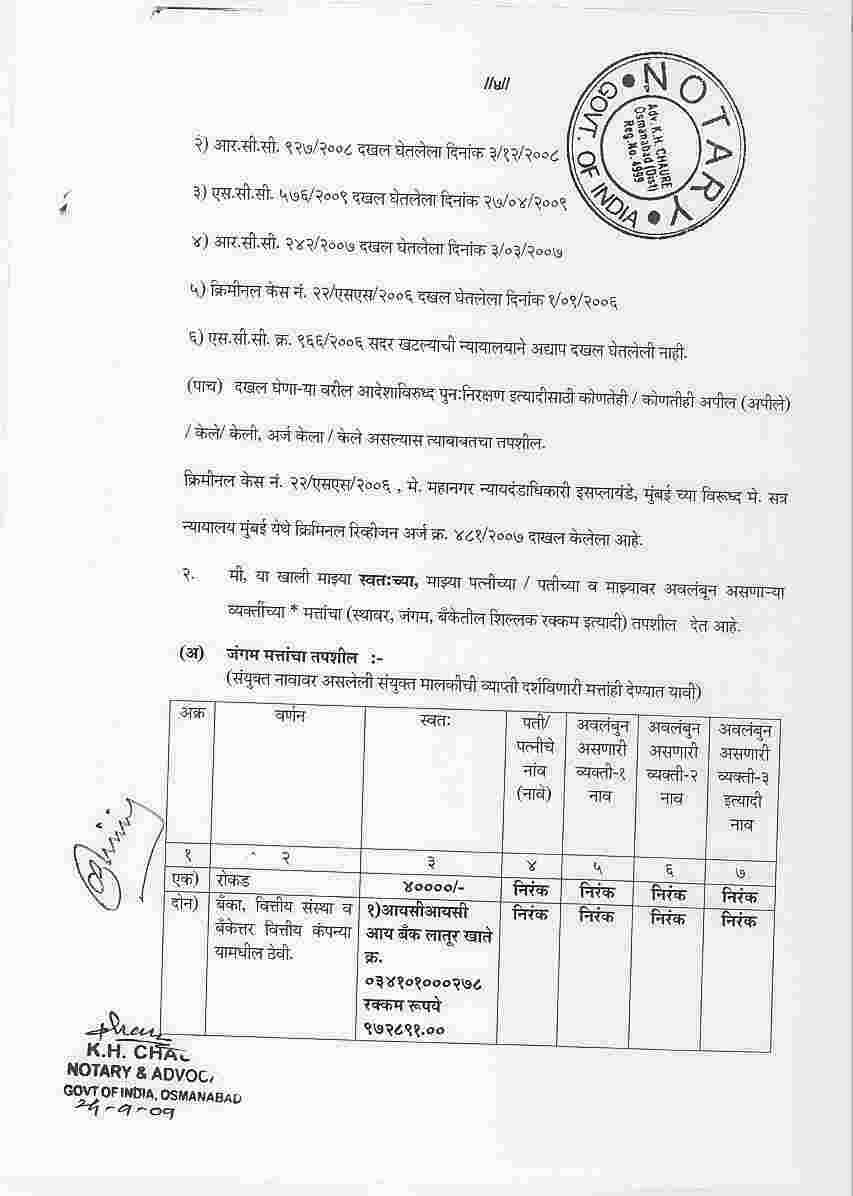 //५//
NOTARY
GOVT. OF INDIA
Adv. K.H. CHAURE
Osmanabad (Dist)
Reg.No. 4999
२) आर.सी.सी. ९२७/२००८ दखल घेतलेला दिनांक ३/१२/२००८
३) एस.सी.सी. ५७६/२००९ दखल घेतलेला दिनांक २७/०४/२००९
४) आर.सी.सी. २४२/२००७ दखल घेतलेला दिनांक ३/०३/२००७
५) क्रिमीनल केस नं. २२/एसएस/२००६ दखल घेतलेला दिनांक १/०९/२००६
६) एस.सी.सी. क्र. ९६६/२००६ सदर खटल्याची न्यायालयाने अद्याप दखल घेतलेली नाही.
(पाच) दखल घेणा-या वरील आदेशाविरुध्द पुन:निरक्षण इत्यादीसाठी कोणतेही / कोणतीही अपील (अपीले)
/ केले/ केली, अर्ज केला / केले असल्यास त्याबाबतचा तपशील.
क्रिमीनल केस नं. २२/एसएस/२००६ , मे. महानगर न्यायदंडाधिकारी इसप्लायंडे, मुंबई च्या विरूध्द मे. सत्र
न्यायालय मुंबई येथे क्रिमिनल रिव्हीजन अर्ज क्र. ४८१/२००७ दाखल केलेला आहे.
२. मी, या खाली माझ्या स्वत:च्या, माझ्या पत्नीच्या / पतीच्या व माझ्यावर अवलंबून असणाऱ्या
व्यक्तींच्या * मत्तांचा (स्थावर, जंगम, बँकेतील शिल्लक रक्कम इत्यादी) तपशील देत आहे.
(अ) जंगम मत्तांचा तपशील :-
(संयुक्त नावावर असलेली संयुक्त मालकीची व्याप्ती दर्शविणारी मत्तांही देण्यात यावी)
अक्र वर्णन स्वत: पती/ अवलंबुन अवलंबुन अवलंबुन
पत्नीचे असणारी असणारी असणारी
नांव व्यक्ती-१ व्यक्ती-२ व्यक्ती-३
(नावे) नाव नाव इत्यादी
नाव
१ २ ३ ४ ५ ६ ७
एक) रोकड ४००००/- निरंक निरंक निरंक निरंक
दोन) बँका, वित्तीय संस्था व १)आयसीआयसी निरंक निरंक निरंक निरंक
बँकेत्तर वित्तीय कंपन्या आय बँक लातूर खाते
यामधील ठेवी. क्र.
०३४१०१०००२७८
रक्कम रूपये
९७२८९१.००
K.H. CHAU
NOTARY & ADVOC
GOVT OF INDIA, OSMANABAD
24-9-09